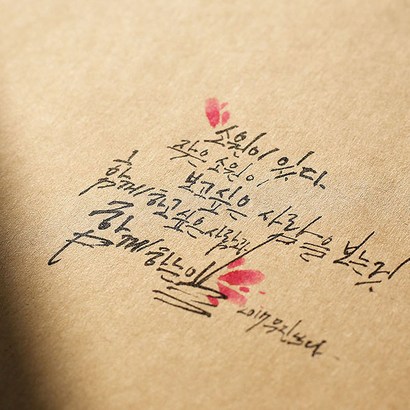 소원이 있다
작은 소원이
보고싶은 사람을 보는것
함께하고 싶은 사람과
함께하는 일
2017